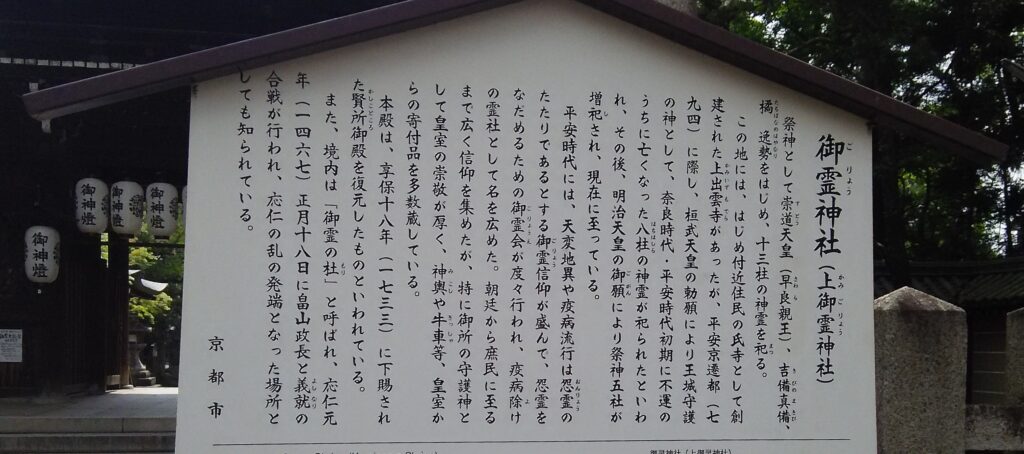 御霊神社（上御霊神社）
祭神として崇道天皇（早良親王）、吉備真備、
橘逸勢をはじめ、十三柱の神霊を祀る。
この地には、はじめ付近住民の氏寺として創
建された上出雲寺があったが、平安京遷都（七
九四）に際し、桓武天皇の勅願により王城守護
の神として、奈良時代・平安時代初期に不運の
うちに亡くなった八柱の神霊が祀られたといわ
れ、その後、明治天皇の御願により祭神五社が
増祀され、現在に至っている。
平安時代には、天変地異や疫病流行は怨霊の
たたりであるとする御霊信仰が盛んで、怨霊を
なだめるための御霊会が度々行われ、疫病除け
の霊社として名を広めた。朝廷から庶民に至る
まで広く信仰を集めたが、特に御所の守護神と
して皇室の崇敬が厚く、神輿や牛車等、皇室か
らの寄付品を多数蔵している。
本殿は、享保十八年（一七三三）に下賜され
た賢所御殿を復元したものといわれている。
また、境内は「御霊の杜」と呼ばれ、応仁元
年（一四六七）正月十八日に畠山政長と義就の
合戦が行われ、応仁の乱の発端となった場所と
しても知られている。
京都市
御神燈
御神燈
御神燈
御神燈